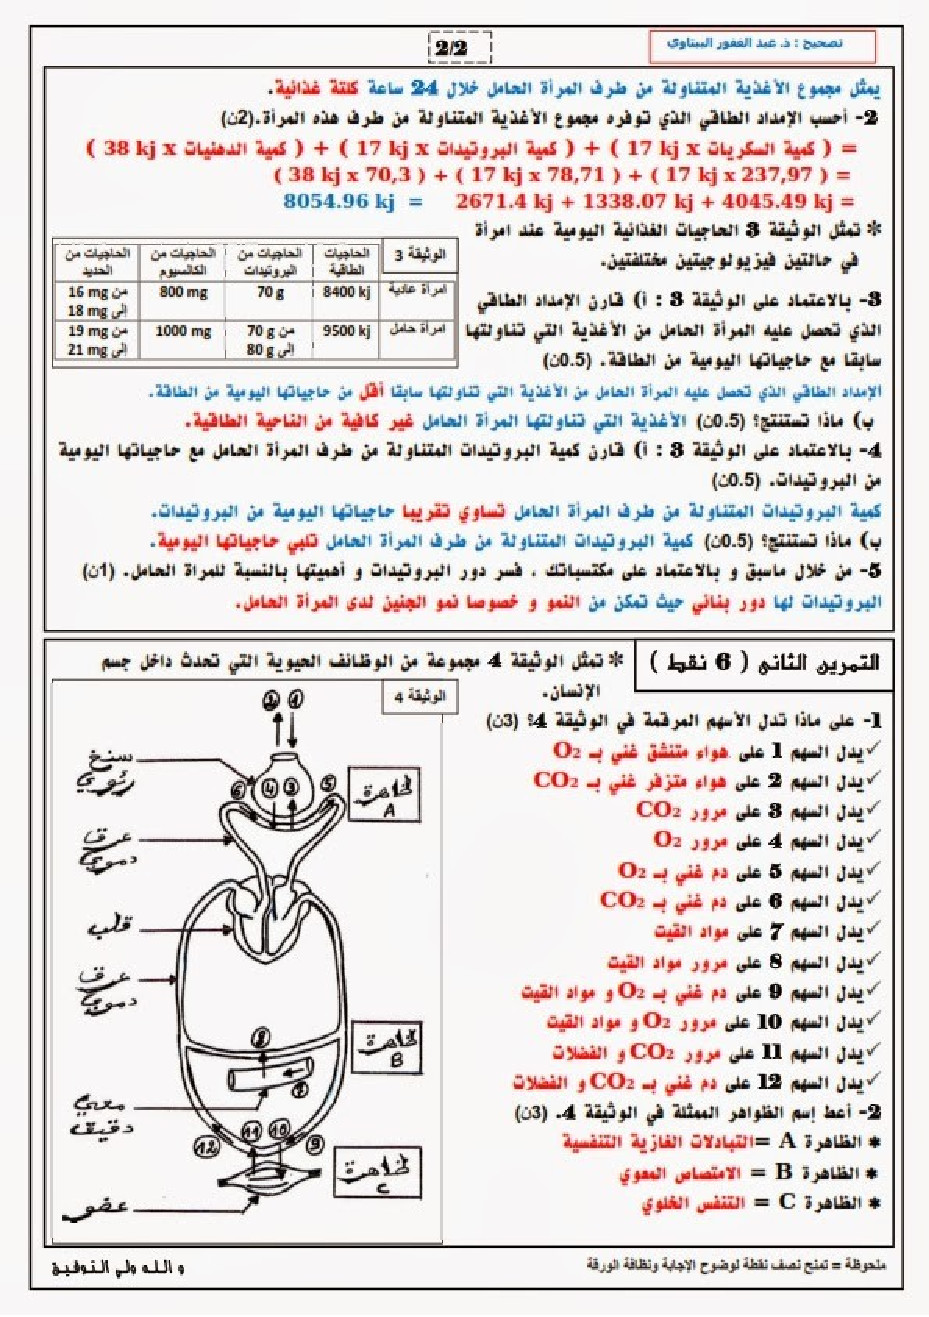 تصحيح : ذ. عبد الغفور البيتاوي
2/2
يمثل مجموع الأغذية المتناولة من طرف المرأة الحامل خلال 24 ساعة كلتة غذائية.
2- أحسب الإمداد الطاقي الذي توفره مجموع الأغذية المتناولة من طرف هذه المرأة.(2ن)
= ( كمية السكريات 17 kj x ) + ( كمية البروتيدات 17 kj x ) + ( كمية الدهنيات 38 kj x )
= ( 17 kj x 237,97 ) + ( 17 kj x 78,71 ) + ( 38 kj x 70,3 )
= 2671.4 kj + 1338.07 kj + 4045.49 kj = 8054.96 kj
* تمثل الوثيقة 3 الحاجيات الغذائية اليومية عند امرأة
في حالتين فيزيولوجيتين مختلفتين.
الوثيقة 3 الحاجيات الطاقية الحاجيات من البروتيدات الحاجيات من الكالسيوم الحاجيات من الحديد
امرأة عادية 8400 kj 70 g 800 mg من 16 mg إلى 18 mg
امرأة حامل 9500 kj من 70 g إلى 80 g 1000 mg من 19 mg إلى 21 mg
3- بالاعتماد على الوثيقة 3 : أ) قارن الإمداد الطاقي
الذي تحصل عليه المرأة الحامل من الأغذية التي تناولتها
سابقا مع حاجياتها اليومية من الطاقة. (0.5ن)
الإمداد الطاقي الذي تحصل عليه المرأة الحامل من الأغذية التي تناولتها سابقا أقل من حاجياتها اليومية من الطاقة.
ب) ماذا تستنتج؟ (0.5ن) الأغذية التي تناولتها المرأة الحامل غير كافية من الناحية الطاقية.
4- بالاعتماد على الوثيقة 3 : أ) قارن كمية البروتيدات المتناولة من طرف المرأة الحامل مع حاجياتها اليومية
من البروتيدات. (0.5ن)
كمية البروتيدات المتناولة من طرف المرأة الحامل تساوي تقريبا حاجياتها اليومية من البروتيدات.
ب) ماذا تستنتج؟ (0.5ن) كمية البروتيدات المتناولة من طرف المرأة الحامل تلبي حاجياتها اليومية.
5- من خلال ماسبق و بالاعتماد على مكتسباتك ، فسر دور البروتيدات و أهميتها بالنسبة للمراة الحامل. (1ن)
البروتيدات لها دور بنائي حيث تمكن من النمو و خصوصا نمو الجنين لدى المرأة الحامل.
التمرين الثاني ( 6 نقط )
* تمثل الوثيقة 4 مجموعة من الوظائف الحيوية التي تحدث داخل جسم
الإنسان.
1- على ماذا تدل الأسهم المرقمة في الوثيقة 4؟ (3ن)
✓ يدل السهم 1 على هواء متنشق غني بـ O2
✓ يدل السهم 2 على هواء متزفر غني بـ CO2
✓ يدل السهم 3 على مرور CO2
✓ يدل السهم 4 على مرور O2
✓ يدل السهم 5 على دم غني بـ O2
✓ يدل السهم 6 على دم غني بـ CO2
✓ يدل السهم 7 على مواد القيت
✓ يدل السهم 8 على مرور مواد القيت
✓ يدل السهم 9 على دم غني بـ O2 و مواد القيت
✓ يدل السهم 10 على مرور O2 و مواد القيت
✓ يدل السهم 11 على مرور CO2 و الفضلات
✓ يدل السهم 12 على دم غني بـ CO2 و الفضلات
2- أعط إسم الظواهر الممثلة في الوثيقة 4. (3ن)
* الظاهرة A =التبادلات الغازية التنفسية
* الظاهرة B = الامتصاص المعوي
* الظاهرة C = التنفس الخلوي
الوثيقة 4
2 1
سنخ
رئوي
6 4 3 5
ظاهرة
A
عرق
دموي
قلب
عرق
دموي
8
ظاهرة
B
7
معي
دقيق
12 11 10 9
ظاهرة
C
عضو
ملحوظة = تمنح نصف نقطة لوضوح الإجابة ونظافة الورقة
و الله ولي التوفيق